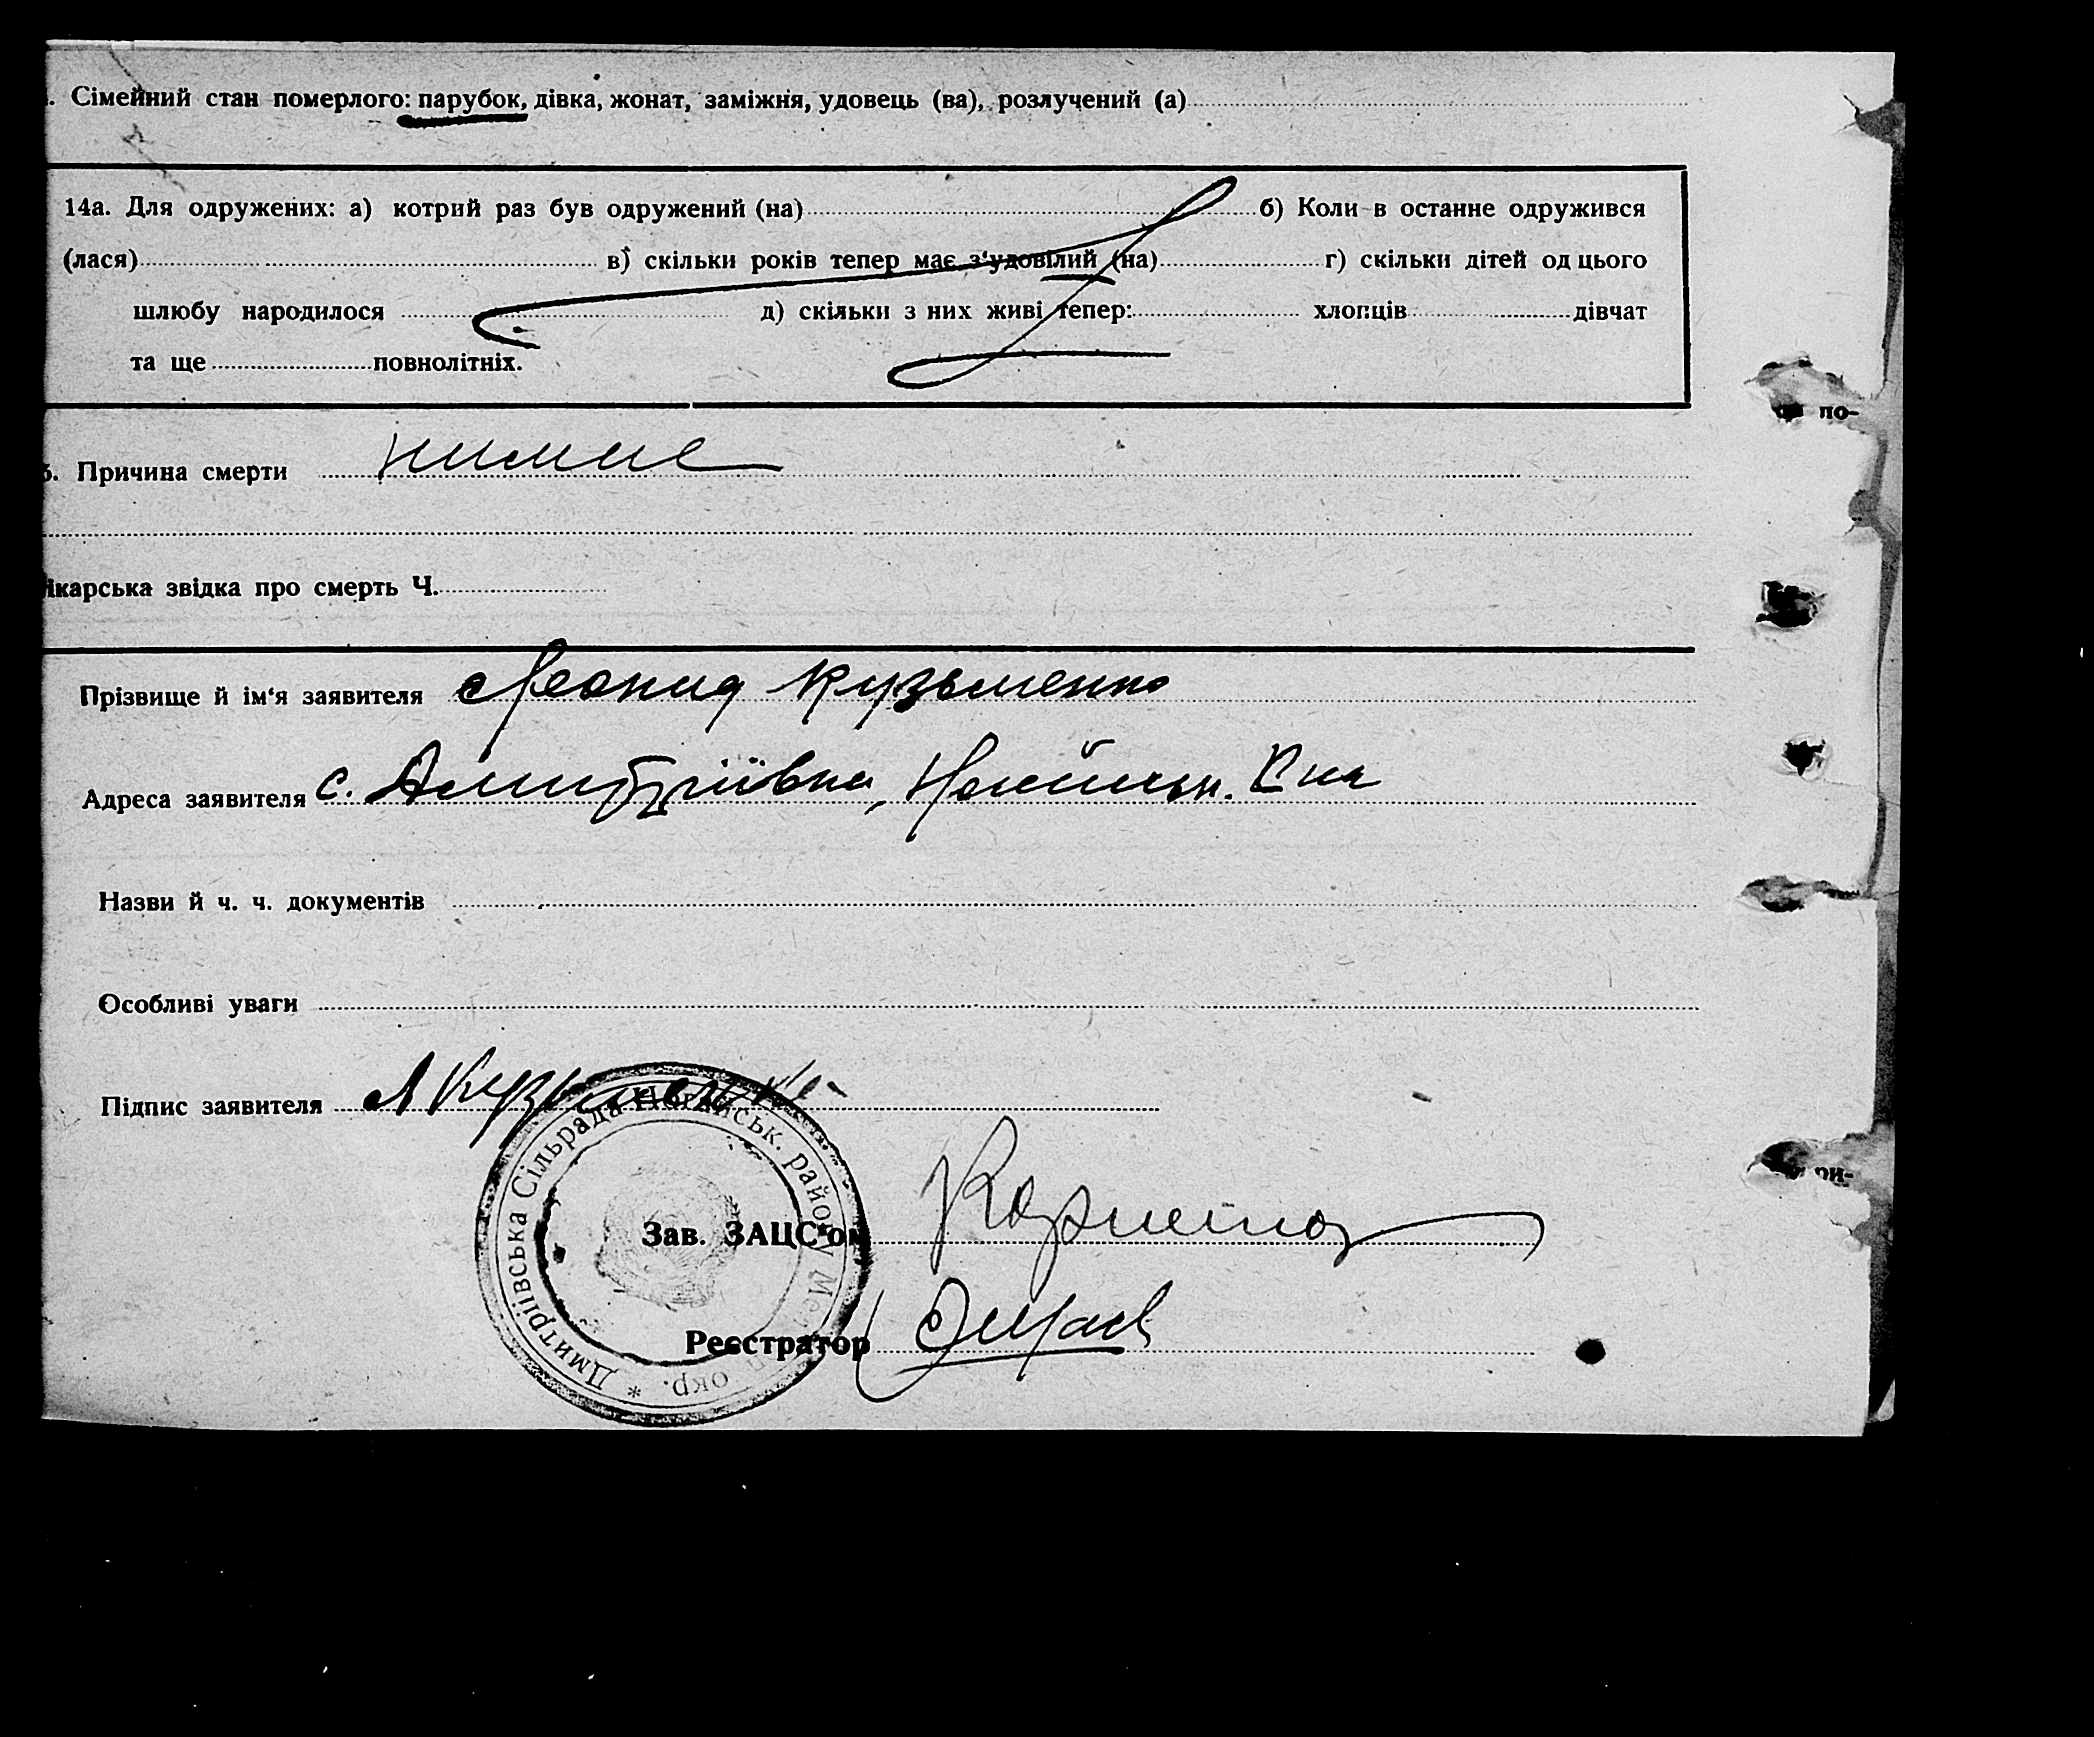 . Сімейний стан померлого: парубок, дівка, жонат, заміжня, удовець (ва), розлучений (а)
14а. Для одружених: а) котрий раз був одружений (на) б) Коли в останне одружився
(лася) в) скільки років тепер має з‘удовілий (на) г) скільки дітей од цього
шлюбу народилося д) скільки з них живі тепер: хлопців дівчат
та ще повнолітніх.
по-
5. Причина смерти
ікарська звідка про смерть Ч.
Прізвище й ім‘я заявителя Леонид Кузьменко
Адреса заявителя с. Дмитріївка,
Назви й ч. ч. документів
Особливі уваги
Підпис заявителя Л Кузьменко
Дмитріївська Сільрада Ногайськ. району окр. *
ри-
Зав. ЗАЦС‘ом
Реєстратор